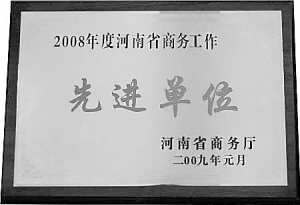 2008年度河南省商务工作
先进单位
河南省商务厅
二00九年元月